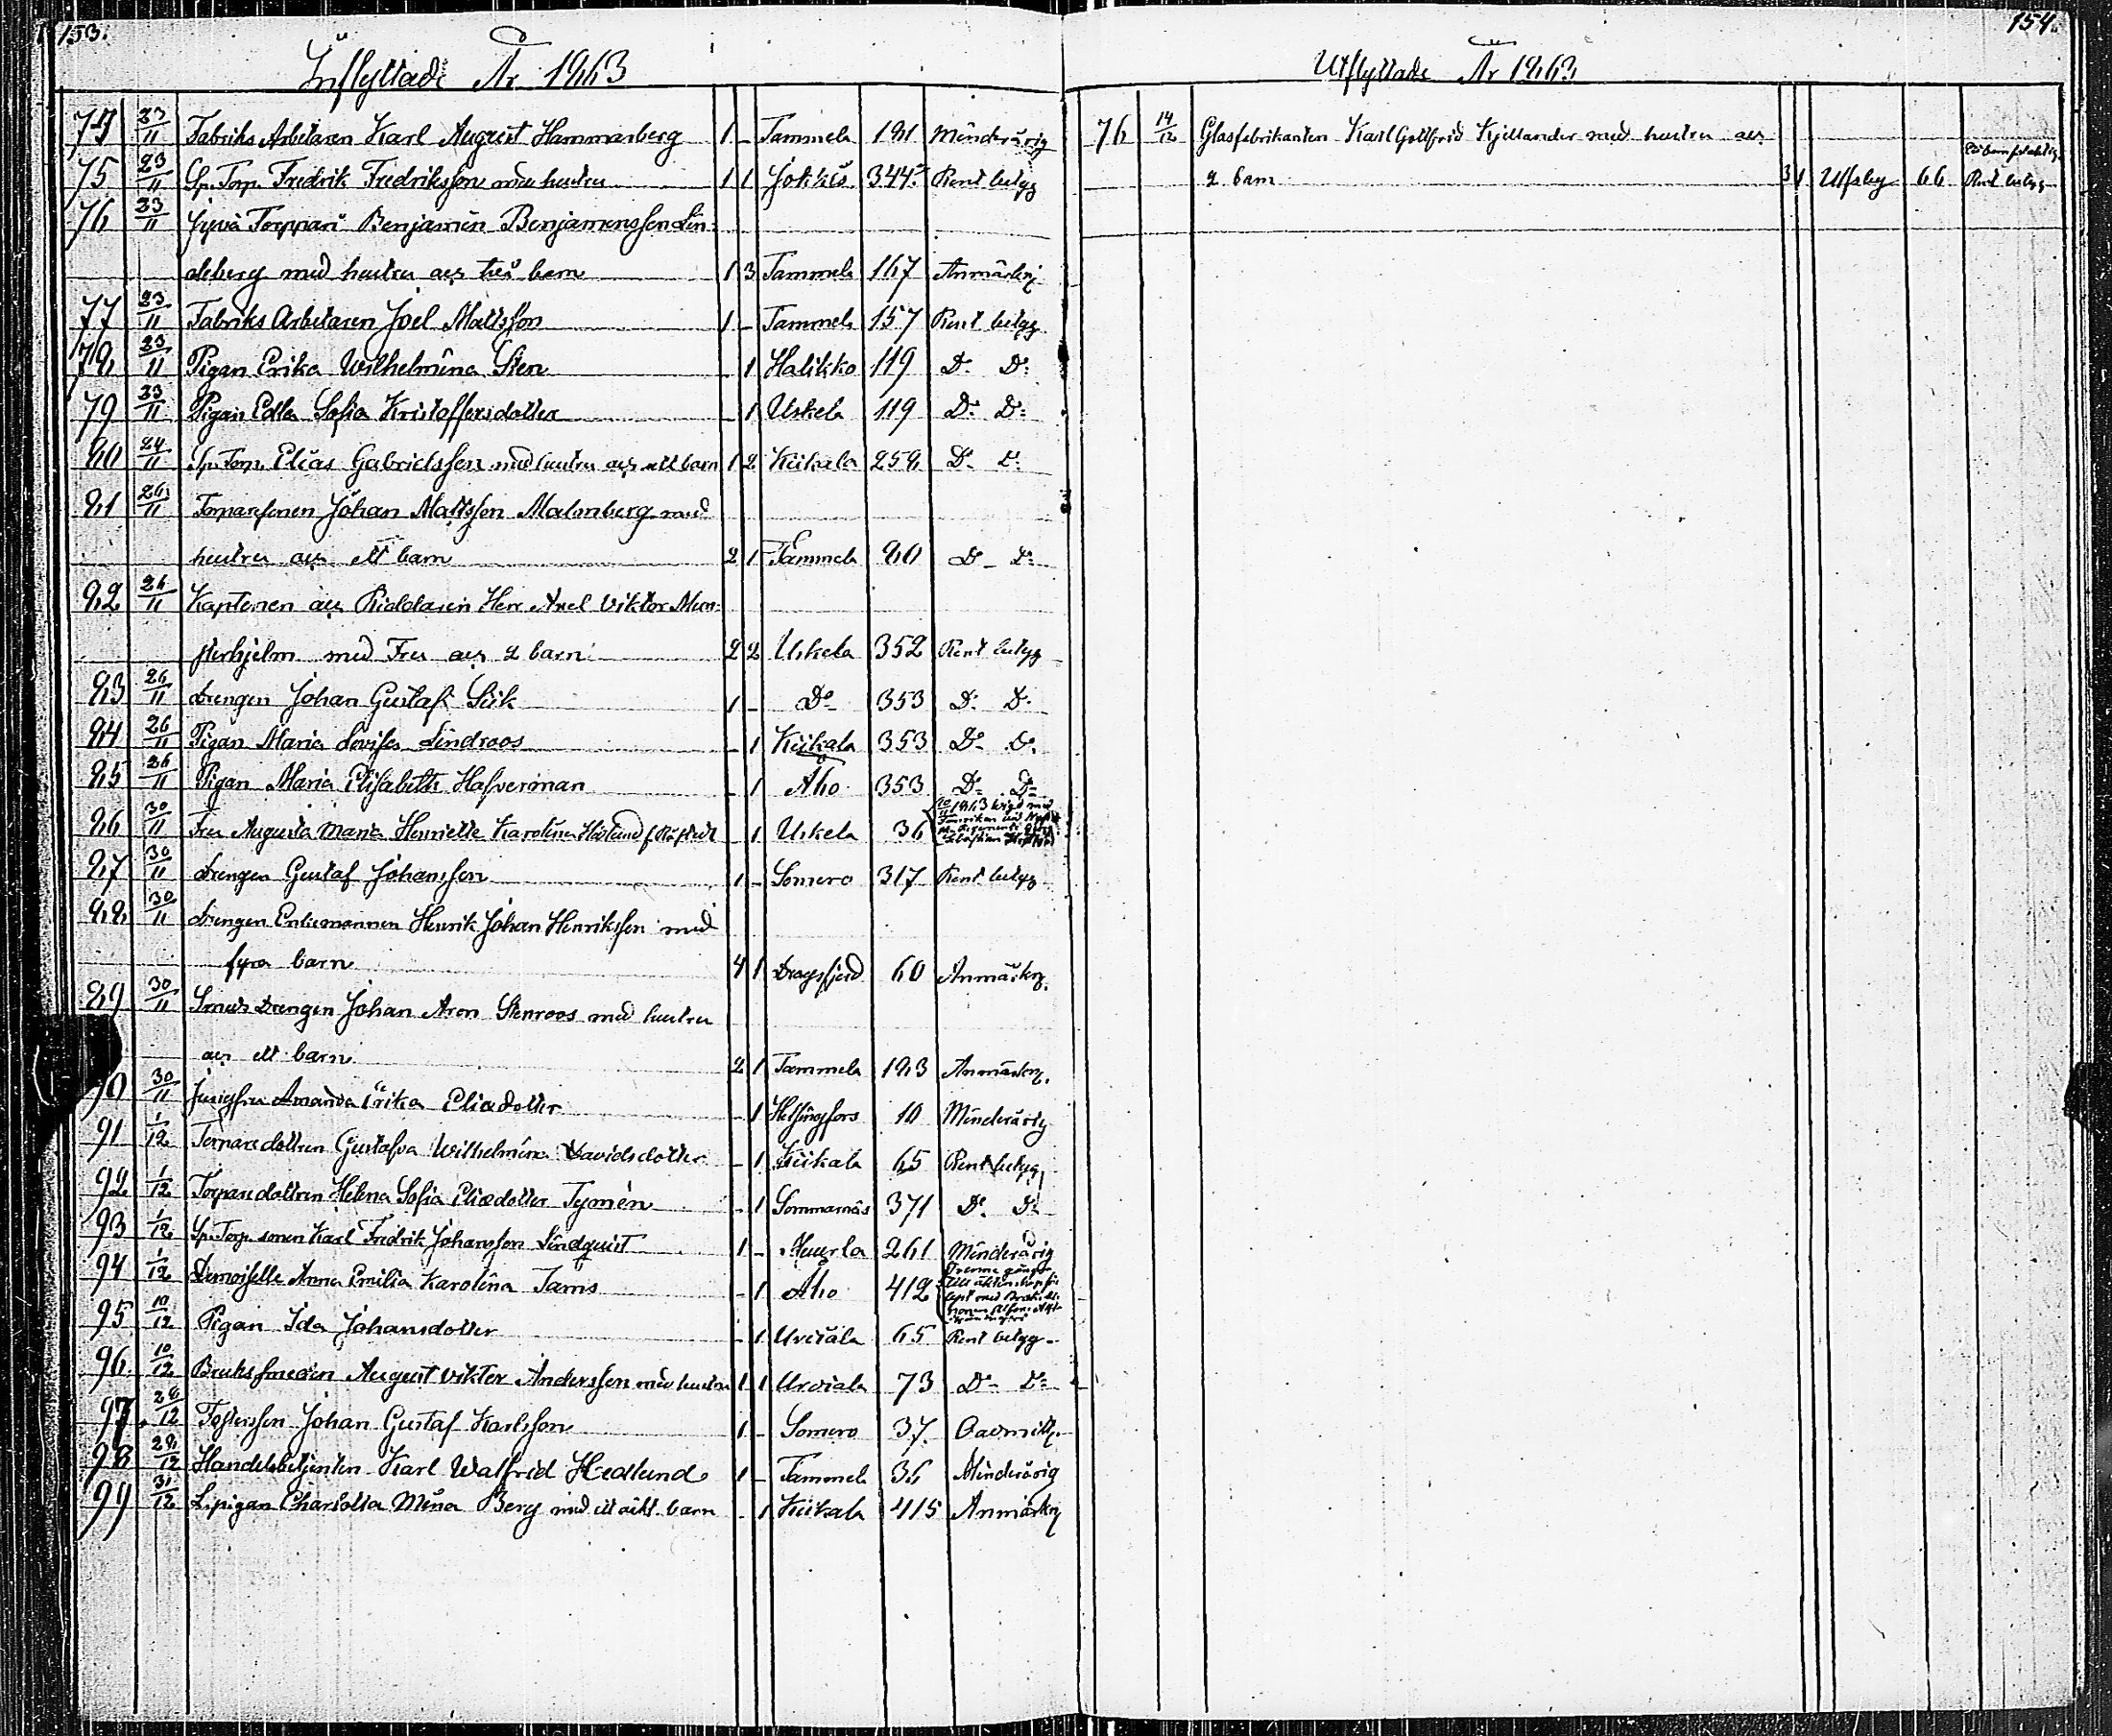 153.
Inflyttade År 1863
74 23/11 Fabriks Arbetaren Karl August Hammarberg 1 - Tammela 181 Minderårig
75 23/11 Sp. Torp. Fredrik Fredriksson med hustru 1 1 Jokkis 344 Rent betyg
76 23/11 Torppari Benjamin Benjaminsson Lin-
deberg med hustru och tre barn 1 3 Tammela 167 Anmärkn.
77 23/11 Fabriks Arbetaren Joel Mattsson 1 - Tammela 157 Rent betyg
78 23/11 Pigan Erika Wilhelmina Sten - 1 Halikko 119 Do Do
79 23/11 Pigan Edla Sofia Kristoffersdotter - 1 Uskela 119 Do Do
80 24/11 Sp. Torp. Elias Gabrielsson med hustru och ett barn 1 2 Kiikala 258 Do Do
81 26/11 Torparesonen Johan Mattsson Malmberg med
hustru och ett barn 2 1 Tammela 80 Do Do
82 26/11 Kaptenen och Riddaren Herr Axel Viktor Mun-
sterhjelm med Fru och 2 barn 2 2 Uskela 352 Rent betyg
83 26/11 Drengen Johan Gustaf Siik 1 - Do 353 Do Do
84 26/11 Pigan Maria Lovisa Lindroos - 1 Kiikala 353 Do Do
85 26/11 Pigan Maria Elisabeth Hafverinan - 1 Åbo 353 Do Do
86 30/11 Fru Augusta Maria Henriette Karolina - 1 Uskela 36
87 30/11 Drengen Gustaf Johansson 1 - Somero 317 Rent betyg
88 30/11 Drengen Enkemannen Henrik Johan Henriksson med
fyra barn 4 1 Dragsfjerd 60 Anmärkn.
89 30/11 Smeds Drengen Johan Aron Stenroos med hustru
och ett barn 2 1 Tammela 183 Anmärkn.
90 30/11 Jungfru Amanda Erika Eliadotter - 1 Helsingfors 10 Minderårig
91 1/12 Torparedottren Gustafva Wilhelmina Davidsdotter - 1 Kiikala 65 Rent betyg
92 1/12 Torparedottren Helena Sofia Eliædotter Tymén - 1 Sommarnäs 371 Do Do
93 1/12 Sp. Torp. sonen Karl Fredrik Johansson Lindquist 1 - Muurla 261 Minderårig
94 1/12 Demoiselle Anna Emilia Karolina Jams - 1 Åbo 412
95 10/12 Pigan Ida Johansdotter - 1 Urdiala 65 Rent betyg
96 10/12 Bruks smeden August Viktor Andersson med hustru 1 1 Urdiala 73 Do Do
97 28/12 Johan Gustaf Karlsson 1 - Somero 37. Oadmitt.
98 28/12 Handelsbetjenten Karl Walfrid Hedlund 1 - Tammela 36 Minderårig
99 31/12 Charlotta Mina Berg med ett äkt. barn - 1 Kiikala 415 Anmärkn
154.
Utflyttade År 1863
76 14/12 Glasfabrikanten Karl Gottfrid Kjellander med hustru och
2 barn 3 1 Ulfsby 66 Rent betyg